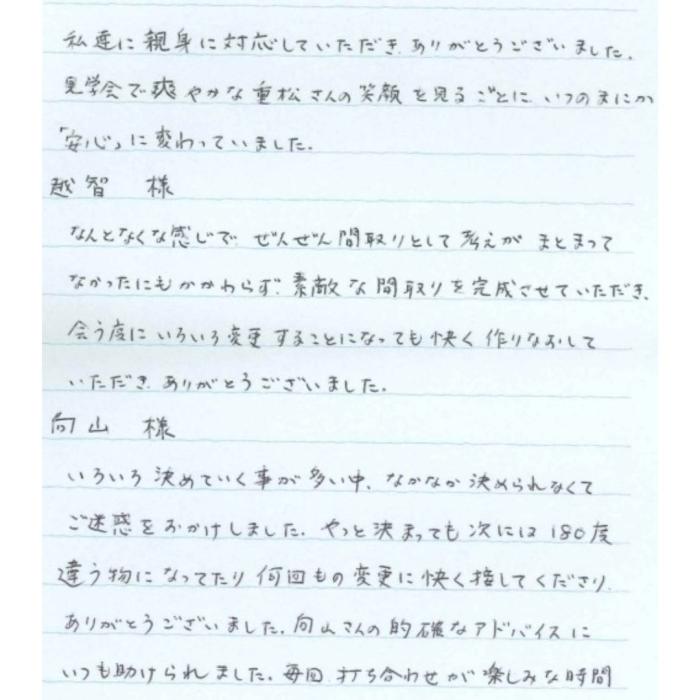 私達に親身に対応していただき、ありがとうございました。
見学会で爽やかな重松さんの笑顔を見るごとに、いつのまにか
「安心」に変わっていました。
越智 様
なんとなくな感じで ぜんぜん間取りとして考えが まとまって
なかったにもかかわらず、素敵な間取りを完成させていただき、
会う度にいろいろ変更することになっても快く作りなおして
いただき、ありがとうございました。
向山 様
いろいろ決めていく事が多い中、なかなか決められなくて
ご迷惑をおかけしました。やっと決まっても次には180度
違う物になってたり何回もの変更に快く接してくださり、
ありがとうございました。向山さんの的確なアドバイスに
いつも助けられました。毎回、打ち合わせが楽しみな時間